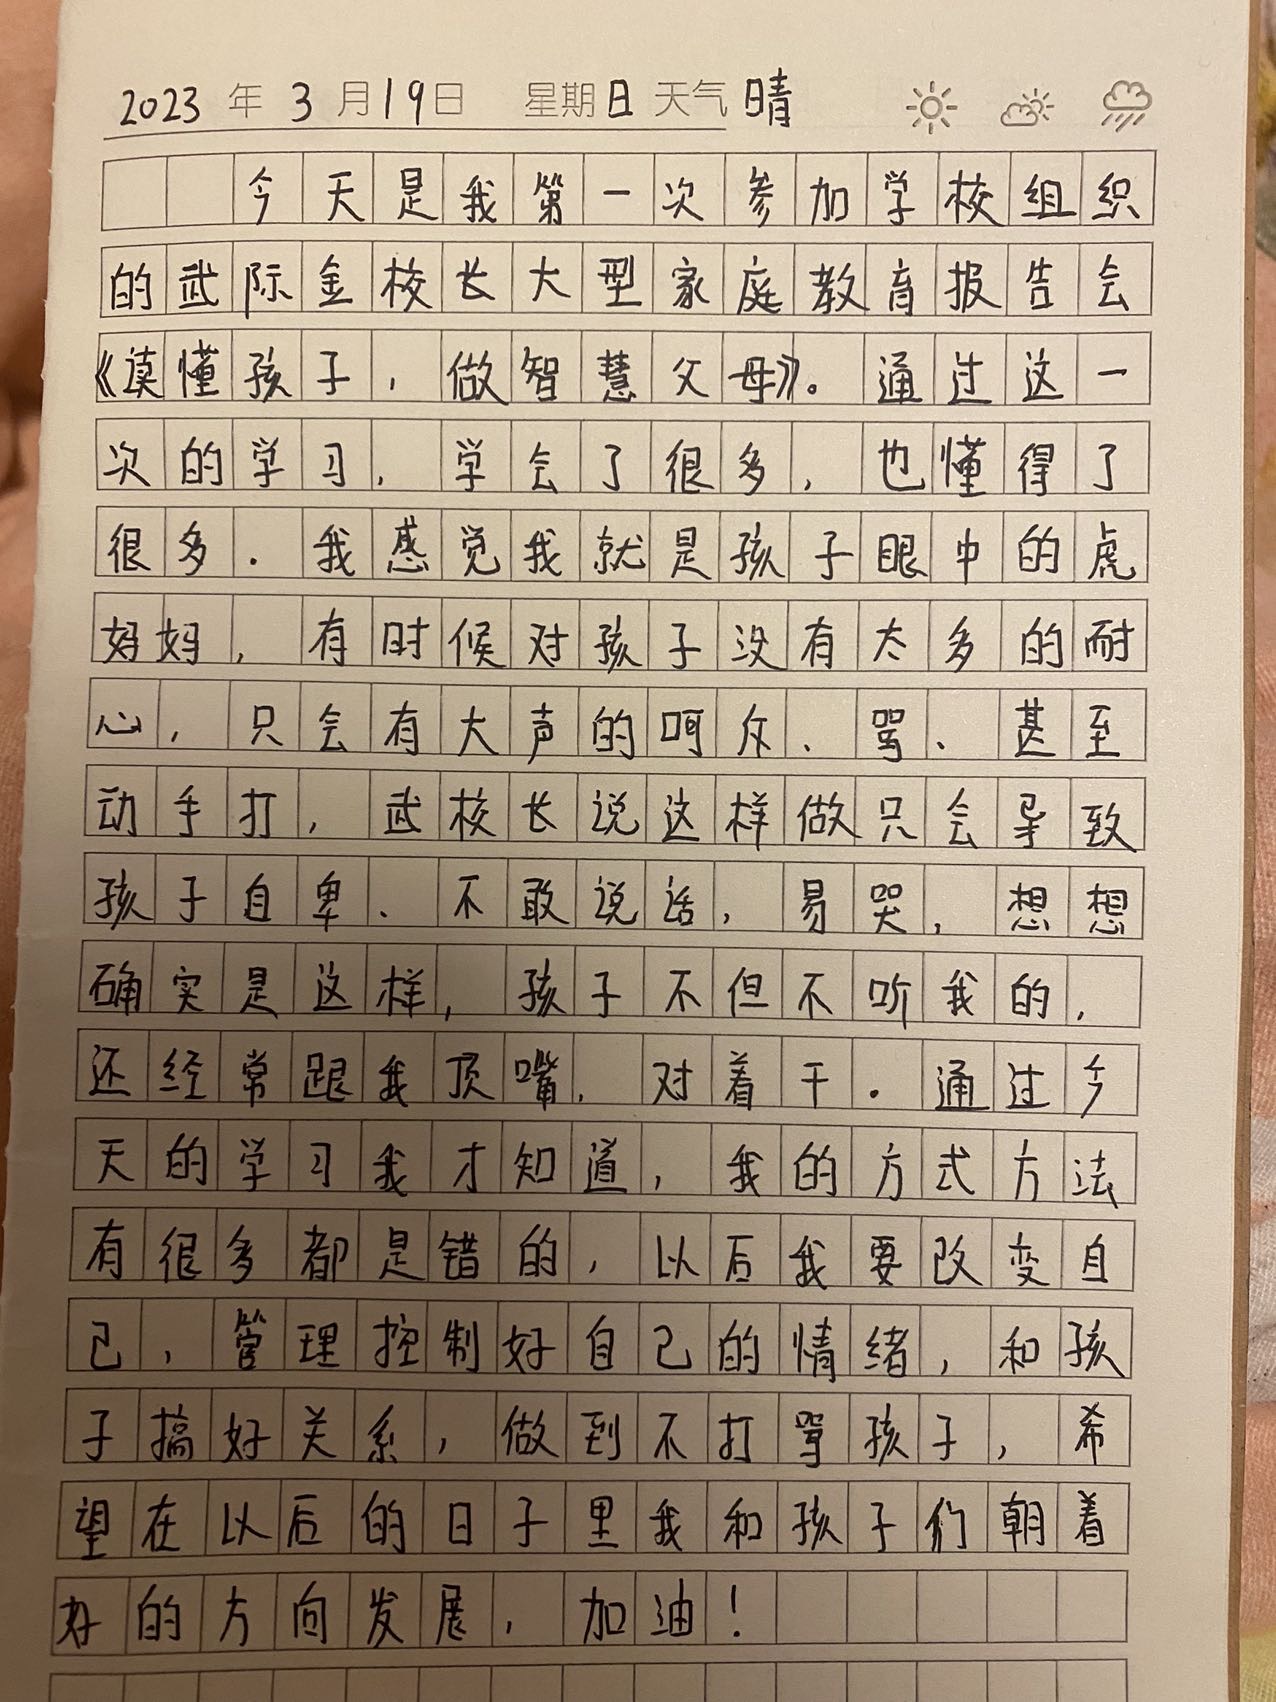 2023年3月19日 星期日 天气晴
今天是我第一次参加学校组织
的武际金校长大型家庭教育报告会
《读懂孩子，做智慧父母》。通过这一
次的学习，学会了很多，也懂得了
很多．我感觉我就是孩子眼中的虎
妈妈，有时候对孩子没有太多的耐
心，只会有大声的呵斥、骂、甚至
动手打，武校长说这样做只会导致
孩子自卑、不敢说话，易哭，想想
确实是这样，孩子不但不听我的，
还经常跟我顶嘴，对着干．通过今
天的学习我才知道，我的方式方法
有很多都是错的，以后我要改变自
己，管理控制好自己的情绪，和孩
子搞好关系，做到不打骂孩子，希
望在以后的日子里我和孩子们朝着
好的方向发展，加油！